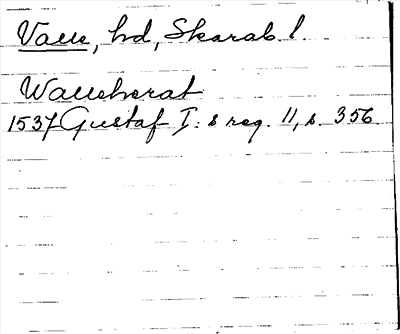 Valle, hd, Skarab. l.
Walleherat
1537 Gustaf I: s reg. 11, s. 356